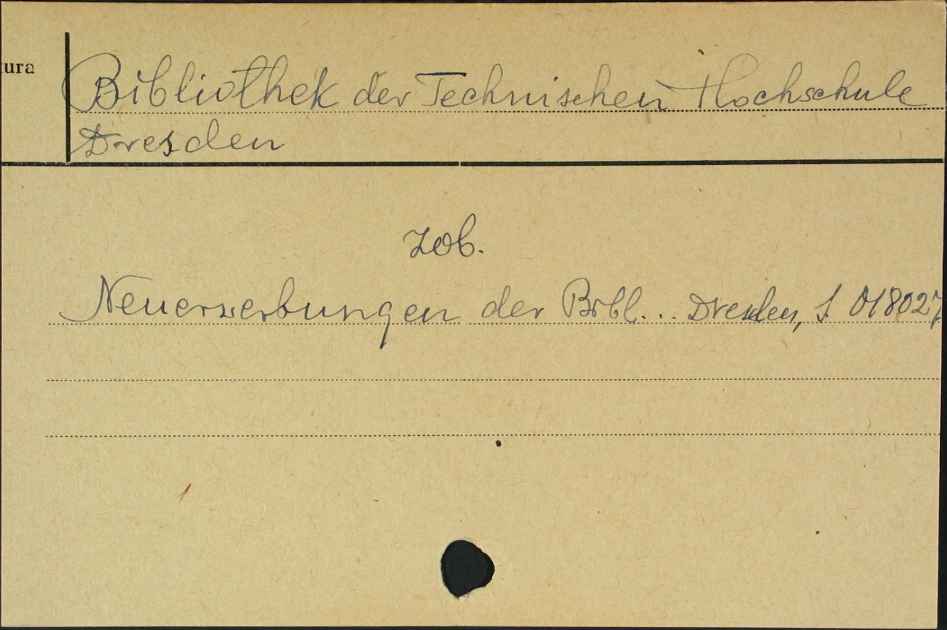 tura
Bibliothek der Technischen Hochschule
Dresden
zob.
Neuerwerbungen der Bibl... Dresden, S 018027